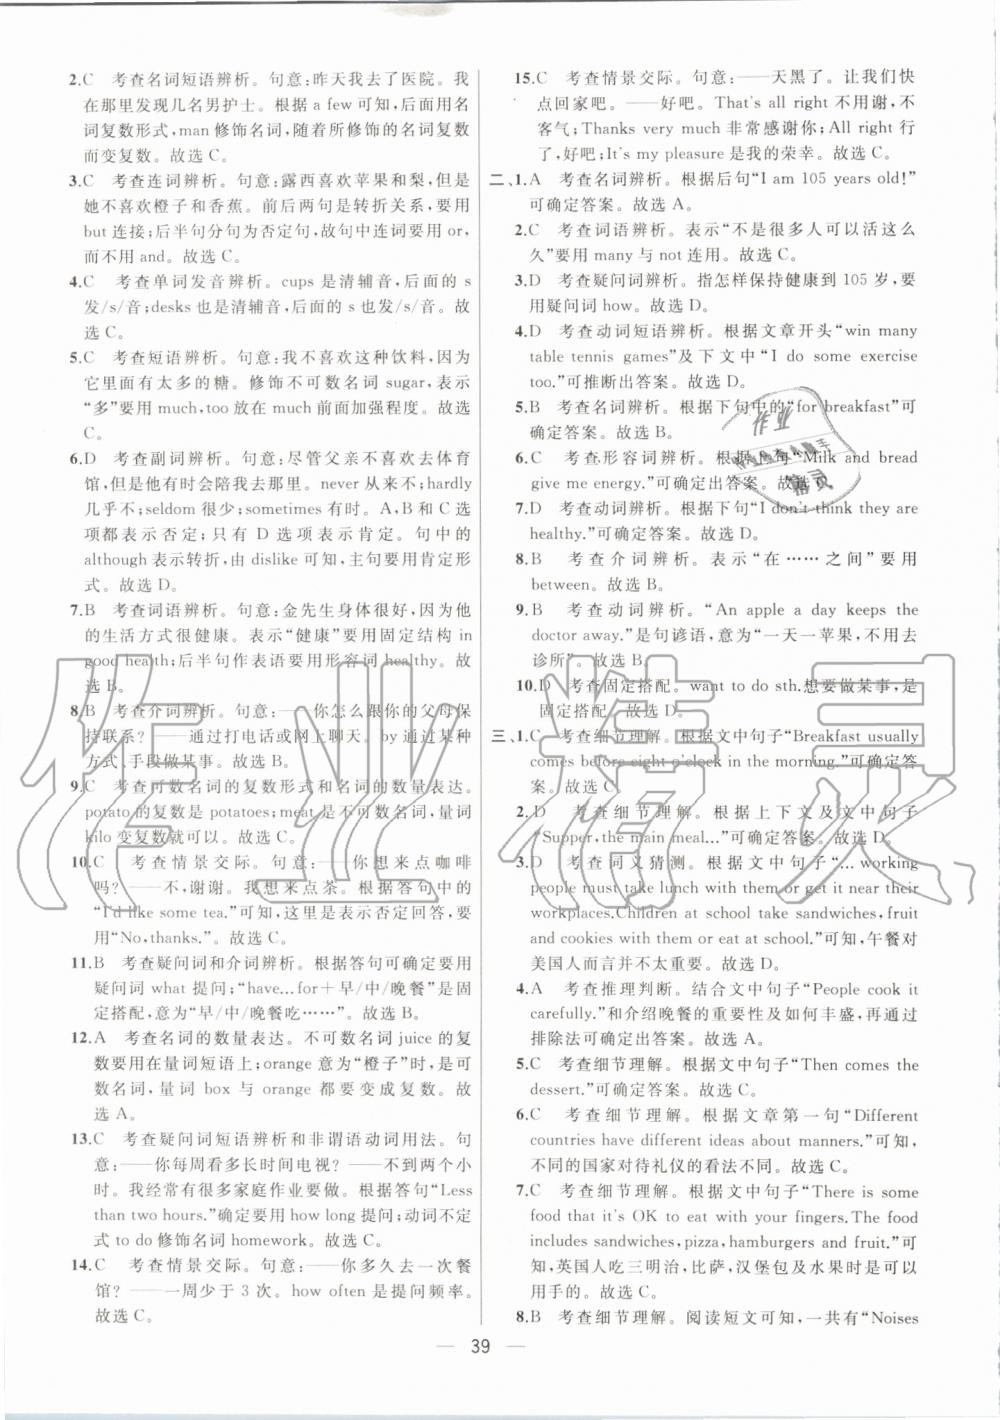 2.C 考查名词短语辨析。句意:昨天我去了医院。我
在那里发现几名男护士。根据 a few 可知,后面用名
词复数形式,man 修饰名词,随着所修饰的名词复数
而变复数。故选 C。
3.C 考查连词辨析。句意:露西喜欢苹果和梨,但是
她不喜欢橙子和香蕉。前后两句是转折关系,要用
but 连接;后半句分句为否定句,故句中连词要用 or,
而不用 and。故选 C。
4.C 考查单词发音辨析。cups 是清辅音,后面的 s
发/s/音;desks 也是清辅音,后面的 s也发/s/音。故
选 C。
5.C 考查短语辨析。句意:我不喜欢这种饮料,因为
它里面有太多的糖。修饰不可数名词 sugar,表示
“多”要用 much,too 放在 much 前面加强程度。故选
C。
6.D 考查副词辨析。句意:尽管父亲不喜欢去体育
馆,但是有时候他会陪我去那里。never 从来不;hardly
几乎不;seldom 很少;sometimes 有时。A、B 和 C 选
项都表示否定;只有 D 选项表示肯定。句中的
although 表示转折,由 dislike 可知,主句要用肯定形
式。故选 D。
7.B 考查词语辨析。句意:金先生身体很好,因为他
的生活方式很健康。表示“健康”要用固定结构 in
good health;后半句作表语要用形容词 healthy。故
选 B。
8.B 考查介词辨析。句意:——你怎么跟你的父母保
持联系?——通过打电话或网上聊天。by通过某种
方式、手段做某事。故选 B。
9.C 考查可数名词的复数形式和名词的数量表达。
potato 的复数是 potatoes;meat 是不可数名词,量词
kilo 变复数就可以。故选 C。
10.C 考查情景交际。句意:——你想来点咖啡
吗?——不,谢谢。我想来点茶。根据答句中的
“I'd like some tea.”可知,这里是表示否定回答,要
用“No,thanks.”。故选 C。
11.B 考查疑问词和介词辨析。根据答句可确定要用
疑问词 what 提问;“have...for+早/中/晚餐”是固
定搭配,意为“早/中/晚餐吃……”。故选 B。
12.A 考查名词的数量表达。不可数名词 juice 的复
数要用在量词短语上;orange 意为“橙子”时,是可
数名词,量词 box 与 orange 都要变成复数。故
选 A。
13.C 考查疑问词短语辨析和非谓语动词用法。句
意:——你每周看多长时间电视?——不到两个小
时。我经常有很多家庭作业要做。根据答句“Less
than two hours.”确定要用 how long 提问;动词不定
式 to do 修饰名词 homework。故选 C。
14.C 考查情景交际。句意:——你多久去一次餐
馆?——一周少于 3 次。how often 是提问频率。
故选 C。
15.C 考查情景交际。句意:——天黑了。让我们快
点回家吧。——好吧。That's all right 不用谢,不
客气;Thanks very much 非常感谢你;All right 行
了,好吧;It's my pleasure 是我的荣幸。故选 C。
二、1.A 考查名词辨析。根据后句“I am 105 years old!”
可确定答案。故选 A。
2.C 考查词语辨析。表示“不是很多人可以活这么
久”要用 many 与 not 连用。故选 C。
3.D 考查疑问词辨析。指怎样保持健康到 105 岁,要
用疑问词 how。故选 D。
4.D 考查动词短语辨析。根据文章开头“win many
table tennis games”及下文中“I do some exercise
too.”可推断出答案。故选 D。
5.B 考查名词辨析。根据下句中的“for breakfast”可
确定答案。故选 B。
6.C 考查形容词辨析。根据上句“Milk and bread
give me energy.”可确定出答案。故选 C。
7.D 考查动词辨析。根据下句“I don't think they are
healthy.”可确定答案。故选 D。
8.B 考查介词辨析。表示“在……之间”要用
between。故选 B。
9.B 考查动词辨析。“An apple a day keeps the
doctor away.”是句谚语,意为“一天一苹果,不用去
诊所”。故选 B。
10.D 考查固定搭配。want to do sth.想要做某事,是
固定搭配。故选 D。
三、1.C 考查细节理解。根据文中句子“Breakfast usually
comes before eight o'clock in the morning.”可确定答
案。故选 C。
2.D 考查细节理解。根据上下文及文中句子
“Supper, the main meal...”可确定答案。故选 D。
3.D 考查词义猜测。根据文中句子“... working
people must take lunch with them or get it near their
workplaces.Children at school take sandwiches, fruit
and cookies with them or eat at school.”可知,午餐对
美国人而言并不太重要。故选 D。
4.A 考查推理判断。结合文中句子“People cook it
carefully.”和介绍晚餐的重要性及如何丰盛,再通过
排除法可确定出答案。故选 A。
5.C 考查细节理解。根据文中句子“Then comes the
dessert.”可确定答案。故选 C。
6.C 考查细节理解。根据文章第一句“Different
countries have different ideas about manners.”可知,
不同的国家对待礼仪的看法不同。故选 C。
7.C 考查细节理解。根据文中句子“There is some
food that it's OK to eat with your fingers. The food
includes sandwiches, pizza, hamburgers and fruit.”可
知,英国人吃三明治,比萨,汉堡包及水果时是可以
用手的。故选 C。
8.B 考查细节理解。阅读短文可知,一共有“Noises
— 39 —
作业精灵